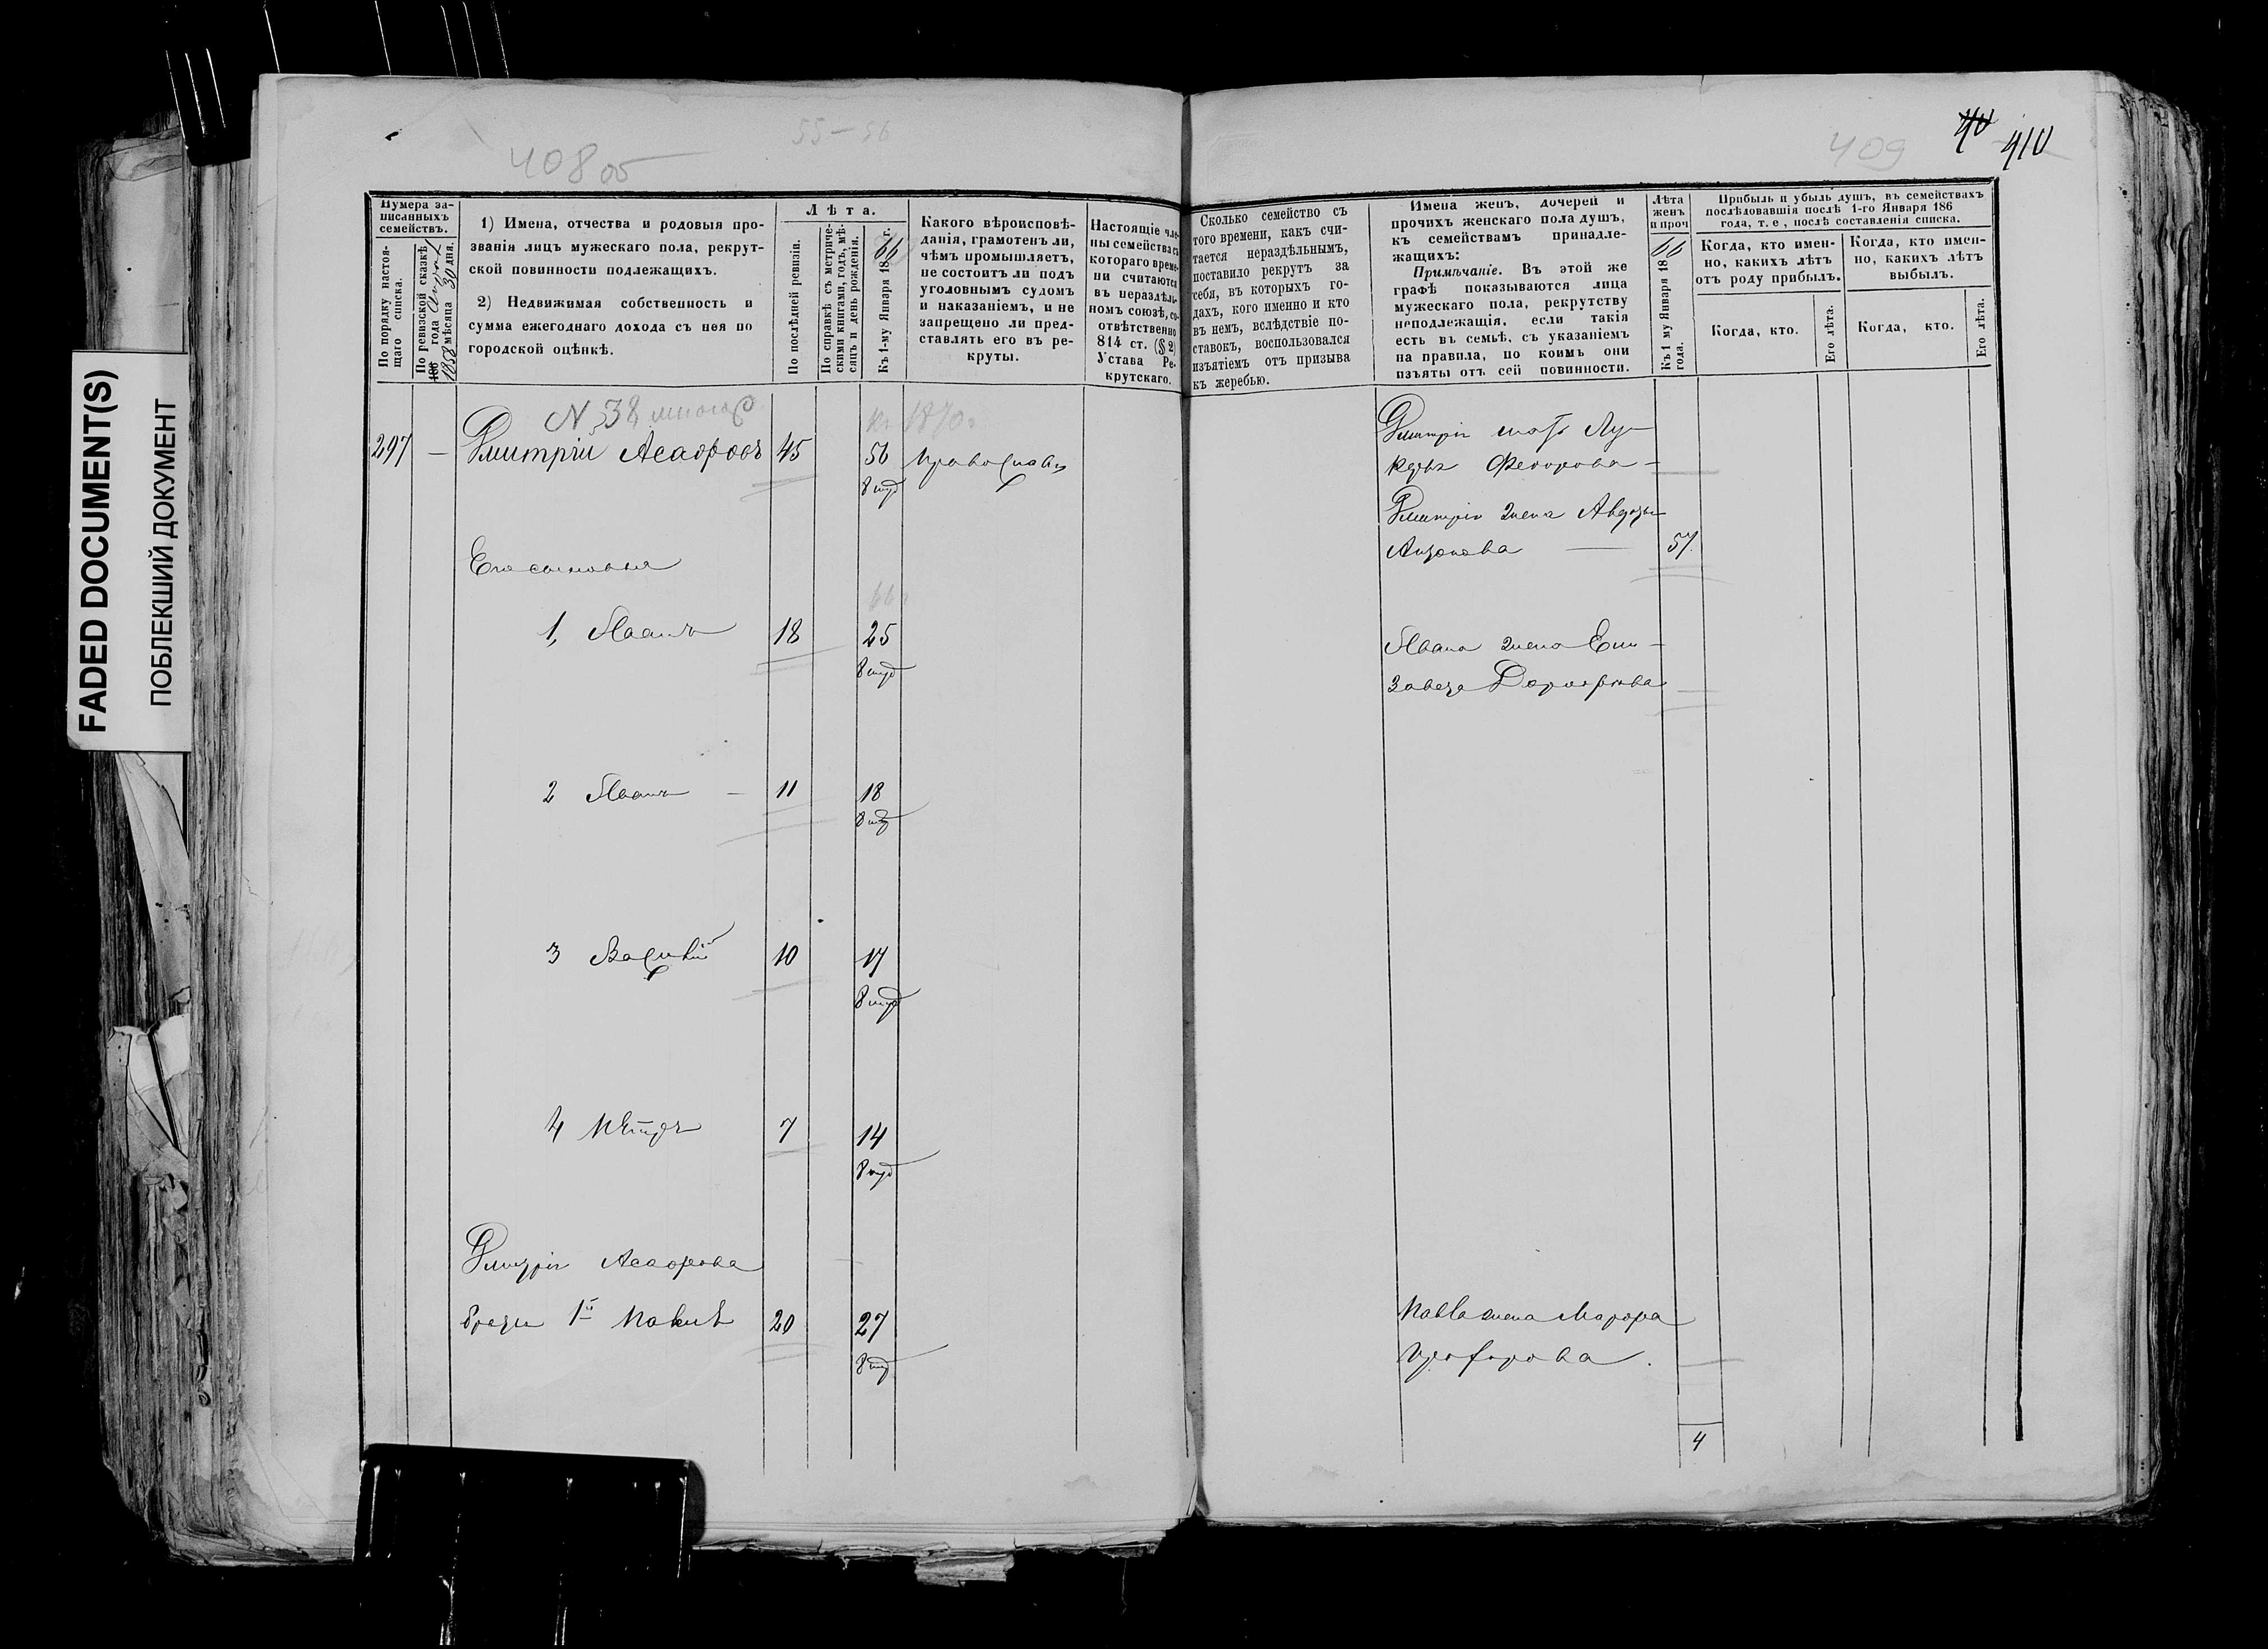 55–56
408 об
409
410
FADED DOCUMENT(S)
ПОБЛЕКШИЙ ДОКУМЕНТ
Нумера за-
писанныхъ
семействъ.
По порядку настоя-
щаго списка.
По ревизской сказкѣ
186 года
1858 мѣсяца 30 дня.
1) Имена, отчества и родовыя про-
званія лицъ мужескаго пола, рекрут-
ской повинности подлежащихъ.
2) Недвижимая собственность и
сумма ежегоднаго дохода съ нея по
городской оцѣнкѣ.
Лѣта.
По послѣдней ревизіи.
По справкѣ съ метриче-
скими книгами, годъ, мѣ-
сяцъ и день рожденія.
Къ 1-му Января 1866 г.
Какого вѣроисповѣ-
данія, грамотенъ ли,
чѣмъ промышляетъ,
не состоитъ ли подъ
уголовнымъ судомъ
и наказаніемъ, и не
запрещено ли пред-
ставлять его въ ре-
круты.
Настоящіе чле-
ны семейства съ
котораго време-
ни считаются
въ нераздѣль-
номъ союзѣ, со-
отвѣтственно
814 ст. (§ 2)
Устава Ре-
крутскаго.
Сколько семейство съ
того времени, какъ счи-
тается нераздѣльнымъ,
поставило рекрутъ за
себя, въ которыхъ го-
дахъ, кого именно и кто
въ немъ, вслѣдствіе по-
ставокъ, воспользовался
изъятіемъ отъ призыва
къ жеребью.
Имена женъ, дочерей и
прочихъ женскаго пола душъ,
къ семействамъ принадле-
жащихъ:
Примѣчаніе. Въ этой же
графѣ показываются лица
мужескаго пола, рекрутству
неподлежащія, если такія
есть въ семьѣ, съ указаніемъ
на правила, по коимъ они
изъяты отъ сей повинности.
Лѣта
женъ
и проч
Къ 1 му Января 1866
года.
Прибыль и убыль душъ, въ семействахъ
послѣдовавшія послѣ 1-го Января 186
года, т. е , послѣ составленія списка.
Когда, кто имен-
но, какихъ лѣтъ
отъ роду прибылъ.
Когда, кто имен-
но, какихъ лѣтъ
выбылъ.
Когда, кто.
Его лѣта.
Когда, кто.
Его лѣта.
N 38
1870
297 — Дмитрій 45 56
Дмитрія
Федорова —
Дмитрія жена Авдотья
Антонова — 57
Его сыновья
1, Иванъ 18 25
Ивана жена Ели-
завета
2 Иванъ — 11 18
3 Василій 10 17
4 Петръ 7 14
Дмитрія
братья 1й Павелъ 20 27
Павла жена
4